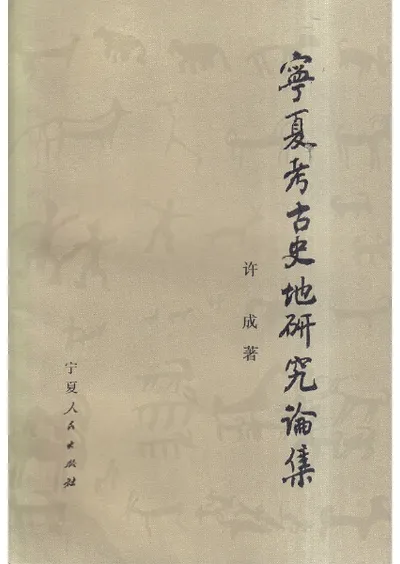 寧夏考古史地研究論集
许成著
宁夏人民出版社